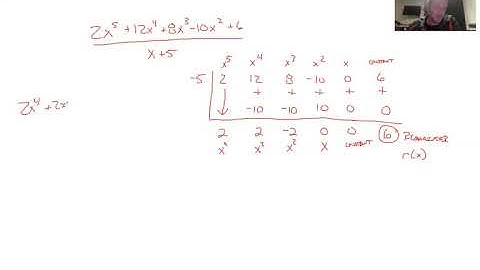 2x⁵+12x⁴+8x³-10x²+6
x+5
x⁵ x⁴ x³ x² x CONSTANT
-5 2 12 8 -10 0 6
+ + + + +
↓ -10 -10 10 0 0
2 2 -2 0 0 6 REMAINDER
x⁴ x³ x² x CONSTANT r(x)
2x⁴+2x